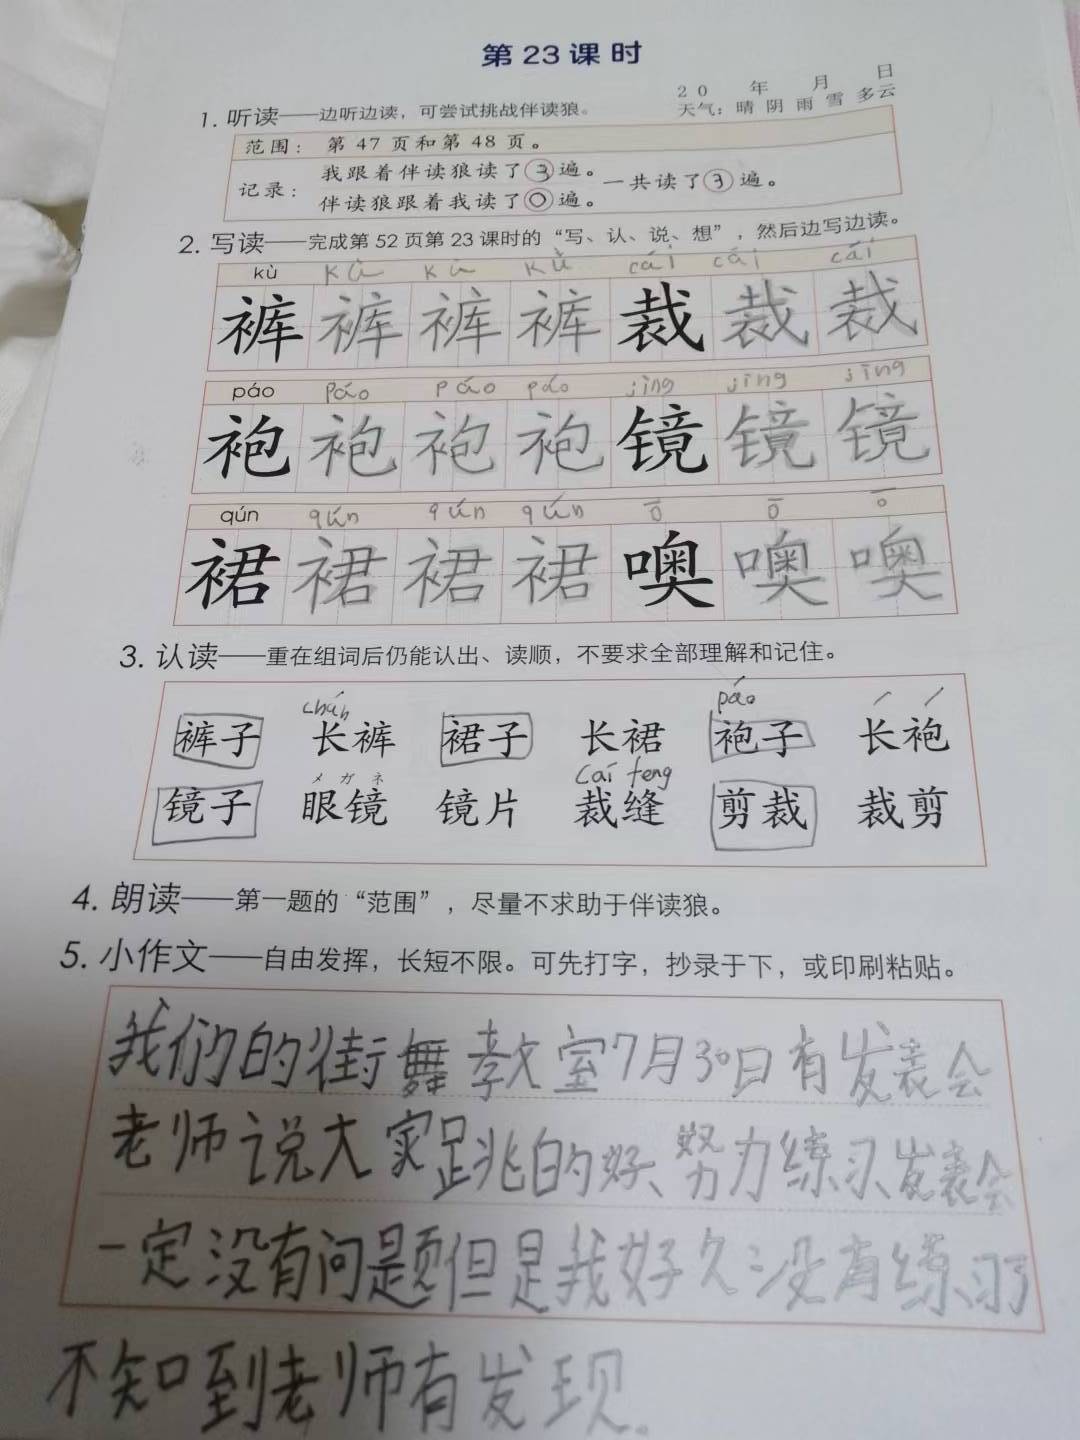 第23课时
20 年 月 日
1. 听读——边听边读，可尝试挑战伴读狼。
天气：晴 阴 雨 雪 多云
范围：第47页和第48页。
记录：
我跟着伴读狼读了3遍。
伴读狼跟着我读了0遍。
一共读了3遍。
2. 写读——完成第52页第23课时的“写、认、说、想”，然后边写边读。
kù kù kù kù cái cái cái
裤 裤 裤 裤 裁 裁 裁
páo páo páo páo jìng jìng jīng
袍 袍 袍 袍 镜 镜 镜
qún qún qún qún ō ō ō
裙 裙 裙 裙 噢 噢 噢
3. 认读——重在组词后仍能认出、读顺，不要求全部理解和记住。
cháh páo
裤子 长裤 裙子 长裙 袍子 长袍
メガネ cai feng
镜子 眼镜 镜片 裁缝 剪裁 裁剪
4. 朗读——第一题的“范围”，尽量不求助于伴读狼。
5. 小作文——自由发挥，长短不限。可先打字，抄录于下，或印刷粘贴。
我们的街舞教室7月30日有发表会
老师说大家跳的好、努力练习、发表会
一定没有问题但是我好久没有练习了
不知到老师有发现。